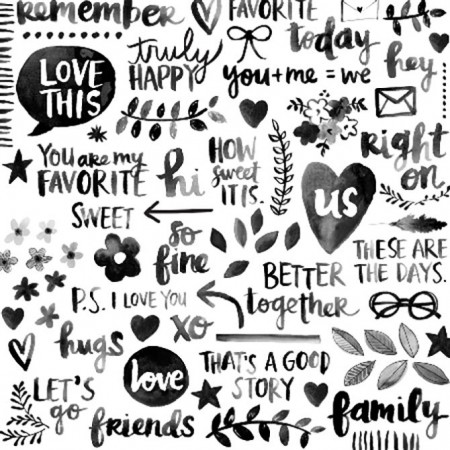 remember
FAVORITE
today
hey
LOVE
THIS
truly
HAPPY
you+me=we
right
on
You are my
FAVORITE
hi
HOW
sweet
IT IS.
us
SWEET
so
fine
THESE ARE
THE DAYS.
BETTER
together
P.S. I LOVE YOU
xo
hugs
love
THAT'S A GOOD
STORY
LET'S
go
friends
family